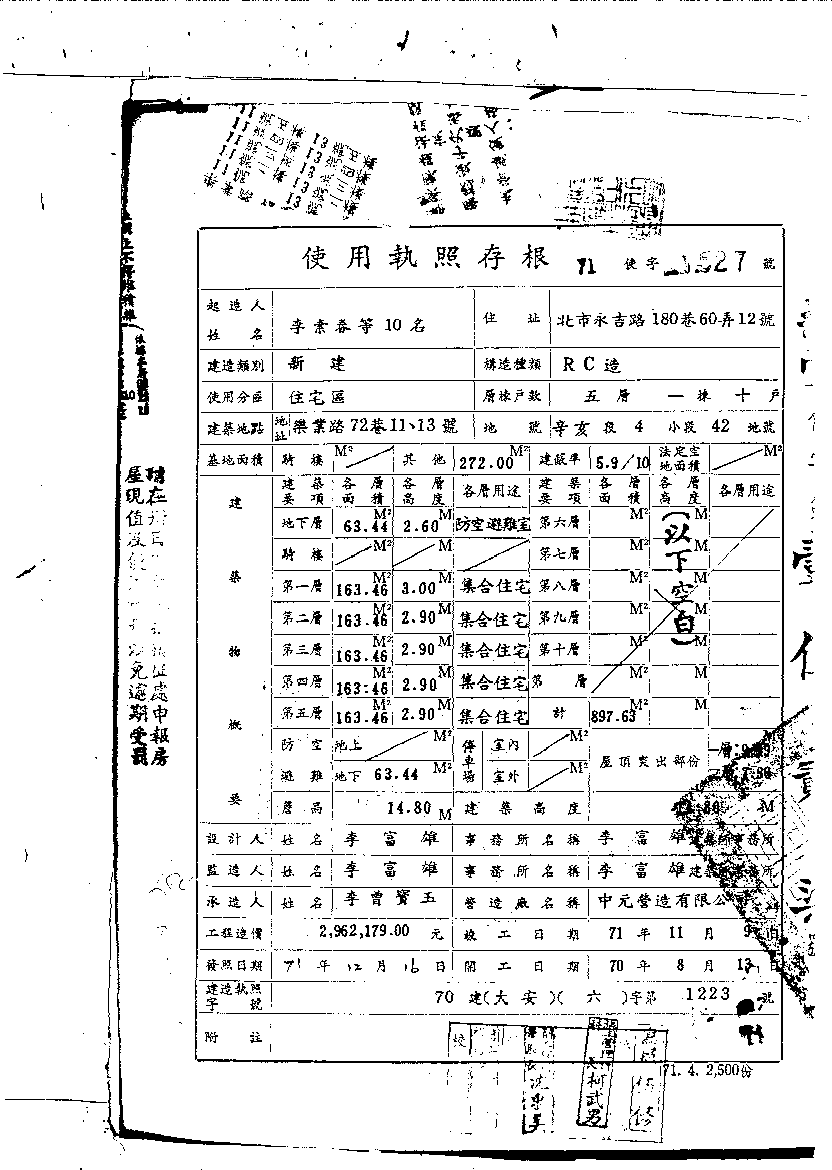 使用執照存根 71 使字 527 號
起造人姓名 李素春等10名 住址 北市永吉路180巷60弄12號
建造類別 新建 構造種類 RC造
使用分區 住宅區 層棟戶數 五層一棟十戶
建築地點 地址 樂業路72巷11、13號 地號 辛亥段4小段42地號
基地面積 騎樓 M² 其他 272.00 M² 建蔽率 5.9/10 法定空地面積 M²
建築物概要
建築要項 各層面積 各層高度 各層用途 建築要項 各層面積 各層高度 各層用途
地下層 63.44 M² 2.60 M 防空避難室 第六層 M² M
騎樓 M² M 第七層 M² M
第一層 163.46 M² 3.00 M 集合住宅 第八層 M² M
第二層 163.46 M² 2.90 M 集合住宅 第九層 M² M
第三層 163.46 M² 2.90 M 集合住宅 第十層 M² M
第四層 163.46 M² 2.90 M 集合住宅 第 層 M² M
第五層 163.46 M² 2.90 M 集合住宅 計 897.63 M² M
(以下空白)
防空避難 地上 M² 停車場 室內 M² 屋頂突出部份
地下 63.44 M² 室外 M²
簷高 14.80 M 建築高度 M
設計人 姓名 李富雄 事務所名稱 李富雄建築師事務所
監造人 姓名 李富雄 事務所名稱 李富雄建築師事務所
承造人 姓名 李曾寶玉 營造廠名稱 中元營造有限公
工程造價 2,962,179.00 元 竣工日期 71年11月9日
發照日期 71年12月16日 開工日期 70年8月13日
建造執照字號 70建(大安)(六)字第1223號
附註
71.4.2,500份